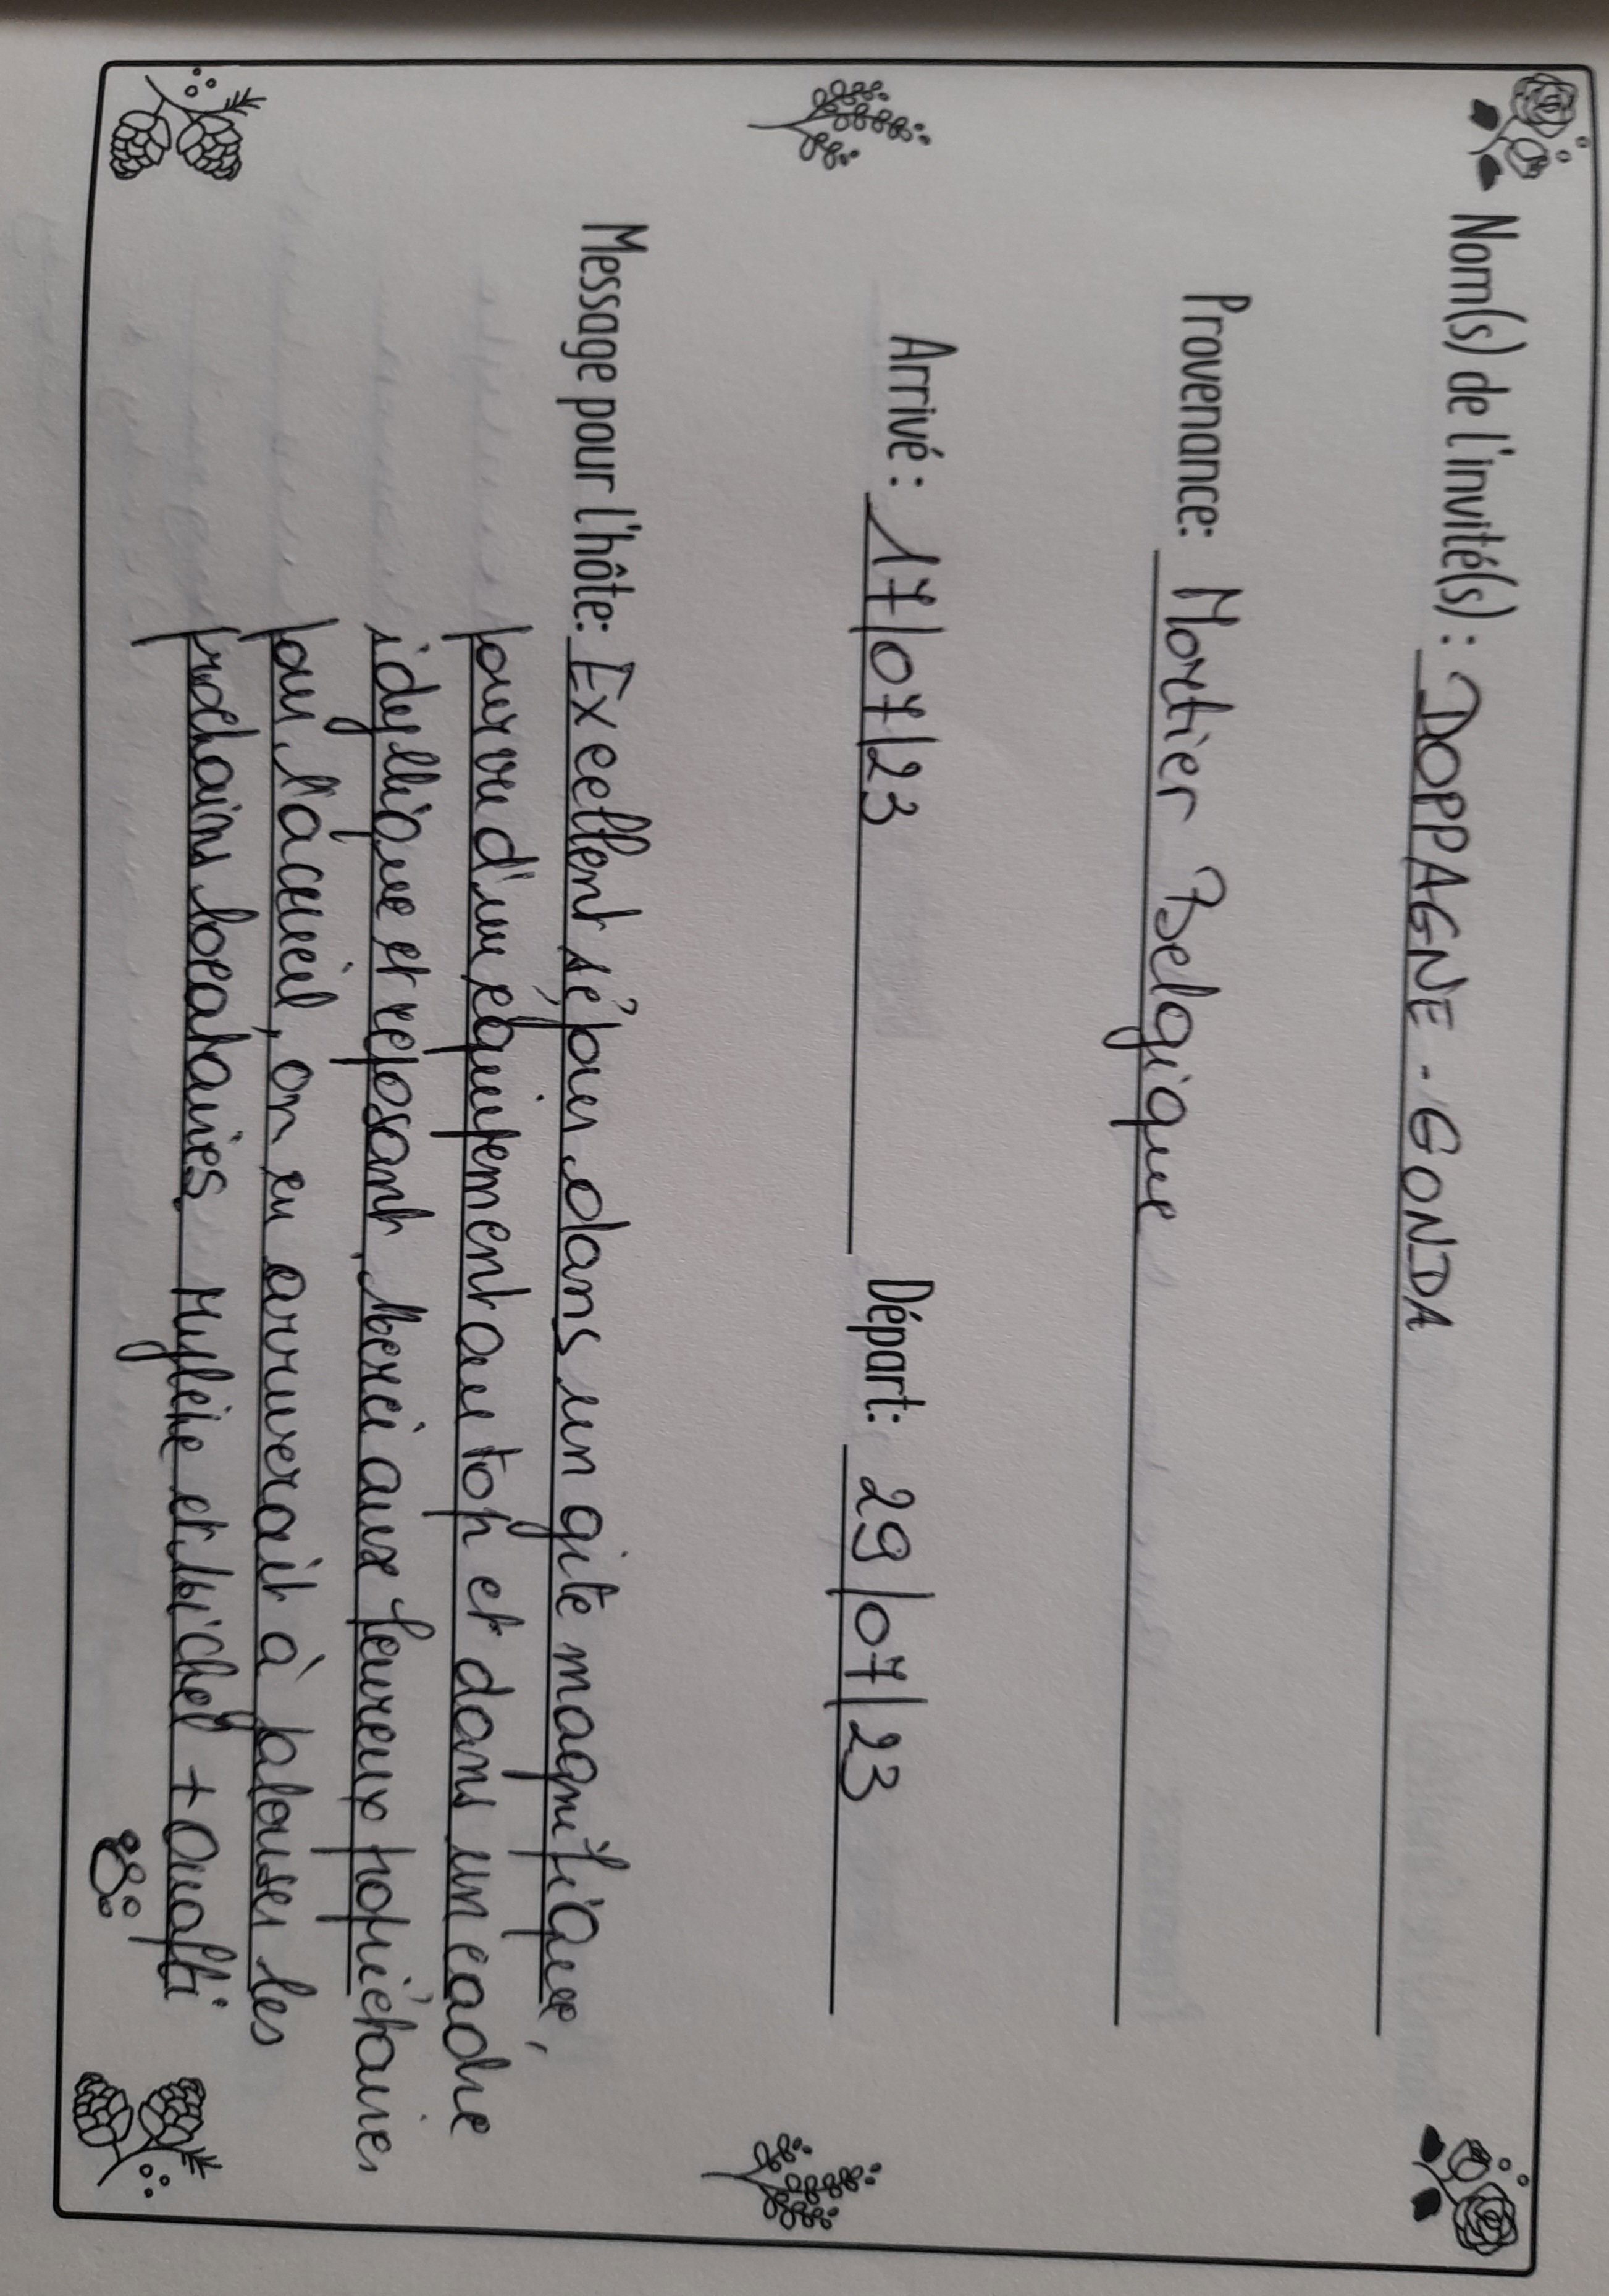 Nom(s) de l'invité(s) : DOPPAGNE - GONDA
Provenance: Mortier Belgique
Arrivé : 17/07/23 Départ: 29/07/23
Message pour l'hôte: Excellent séjour dans un gite magnifique,
pourvu d'un équipement au top et dans un cadre
idyllique et reposant. Merci aux heureux propriétaires
pour l'accueil, on en arriverait à jalouser les
prochains locataires. Mylène et Michel +